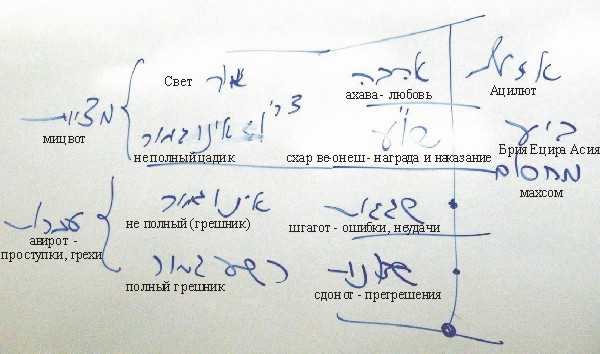 אור
אהבה
אצילות
Свет
ахава - любовь
Ацилют
צדיק
אינו גמור
בי"ע
מצוות
мицвот
неполный цадик
схар ве-онеш - награда и наказание
Брия Ецира Асия
מחסום
махсом
אינו גמור
שגגות
не полный (грешник)
шгагот - ошибки, неудачи
авирот -
проступки, грехи
רשע גמור
полный грешник
сдонот - прегрешения